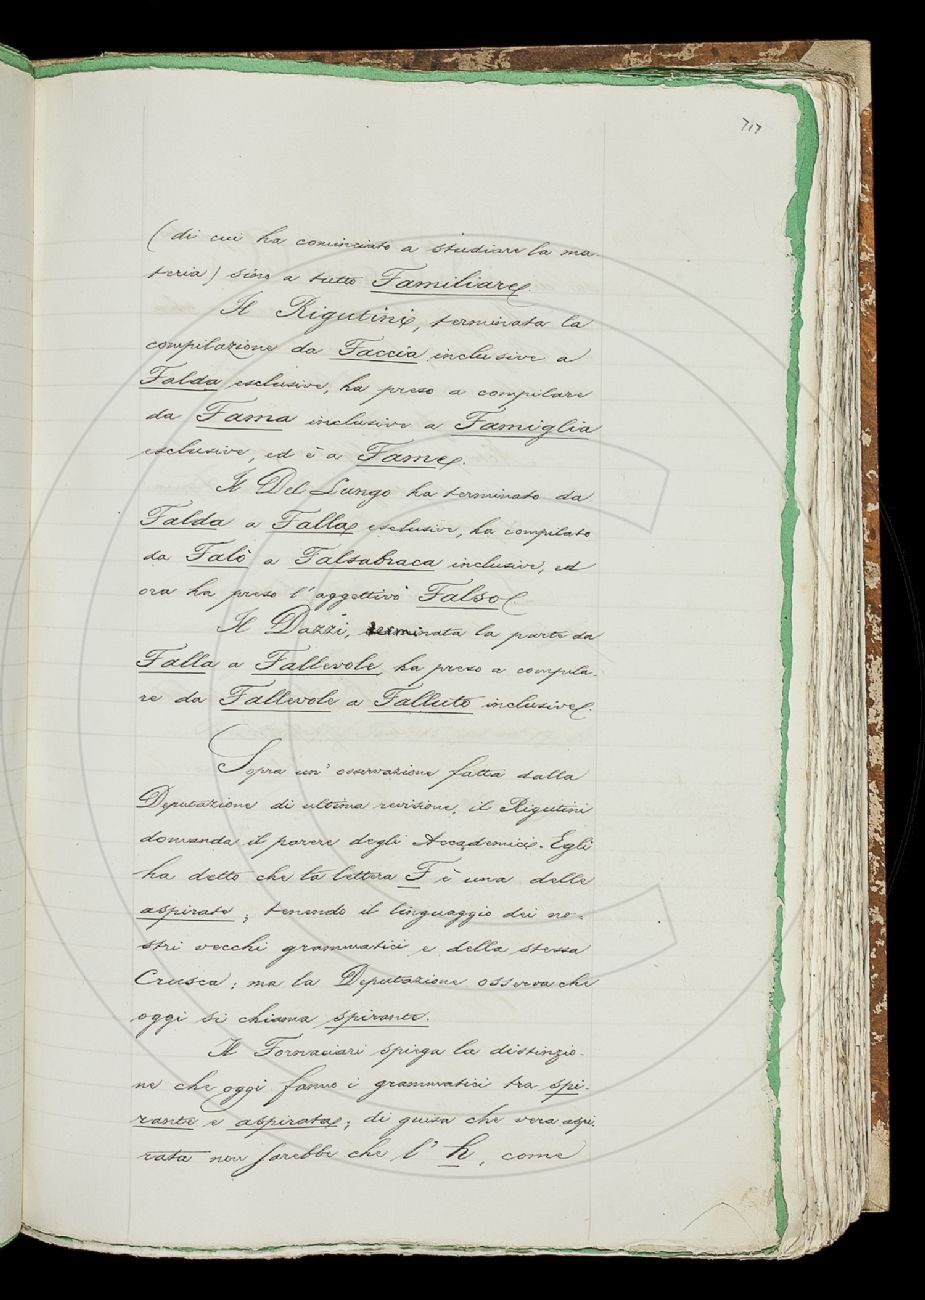 717
(di cui ha cominciato a studiare la ma-
teria) sino a tutto Familiare
Il Rigutini, terminata la
compilazione da Faccia inclusive a
Falda esclusive, ha preso a compilare
da Fama inclusive a Famiglia
esclusive, ed è a Fame.
Il Del Lungo ha terminato da
Falda a Falla esclusive, ha compilato
da Falò a Falsabraca inclusive, ed
ora ha preso l'aggettivo Falso
Il Dazzi, terminata la parte da
Falla a Fallevole, ha preso a compila-
re da Fallevole a Falluto inclusive.
Sopra un' osservazione fatta dalla
Deputazione di ultima revisione, il Rigutini
domanda il parere degli Accademici. Egli
ha detto che la lettera F è una delle
aspirate, tenendo il linguaggio dei no-
stri vecchi grammatici e della stessa
Crusca; ma la Deputazione osserva che
oggi si chiama spirante.
Il Fornaciari spiega la distinzio-
ne che oggi fanno i grammatici tra spi-
rante e aspirata; di guisa che vera aspi-
rata non sarebbe che l' h, come